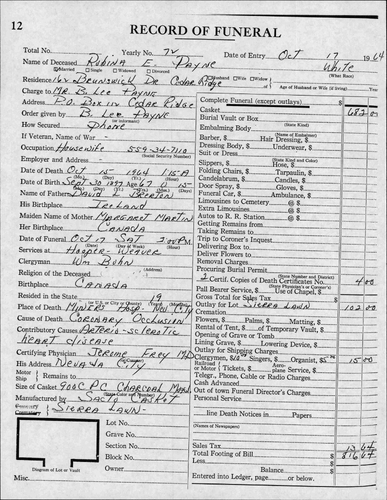 12
RECORD OF FUNERAL
Total No. Yearly No. 72 Date of Entry Oct 17 1964
Name of Deceased Robina E. Payne White
Married Single Widowed Divorced (What Race)
Residence 162 Brunswick Dr Cedar Ridge Husband Wife Widow
Charge to Mr. B. Lee Payne Age of Husband or Wife (if living)
Address P.O. Box 112 Cedar Ridge
Order given by B. Lee Payne
How Secured Phone
If Veteran, of War
Occupation Housewife 559-34-7110
(Social Security Number)
Employer and Address
Date of Death Oct 15 1964 1:15 A
Date of Birth Sept 30 1897 67 0 15
Name of Father David Brereton
His Birthplace Ireland
Maiden Name of Mother Margaret Martin
Her Birthplace Canada
Date of Funeral Oct 17 Sat 2:00 PM
Services at Hooper-Weaver
Clergyman Wm Buhn
Religion of the Deceased
Birthplace Canada
Resided in the State 19
Place of Death Miners Hosp. Nev. City
Cause of Death Coronary Occlusion
Contributory Causes Arterio-sclerotic
heart disease
Certifying Physician Jerome Frey MD
His Address Nevada City
Motor Ship Remains to
Size of Casket 900C PC Charcoal
Manufactured by Sac'to Casket
Cemetery Sierra Lawn
Crematory
Diagram of Lot or Vault
Lot No.
Grave No.
Section No.
Block No.
Owner
Complete Funeral (except outlays) $
Casket 682 00
Burial Vault or Box
(State Kind)
Embalming Body
(Name of Embalmer)
Barber, $ Hair Dressing, $
Dressing Body, $ Underwear, $
Suit or Dress
(State Kind and Color)
Slippers, $ Hose, $
Folding Chairs, $ Tarpaulin, $
Candelabrum, $ Candles, $
Door Spray, $ Gloves, $
Funeral Car, $ Ambulance, $
Limousines to Cemetery @ $
Extra Limousines @ $
Autos to R. R. Station @ $
Getting Remains from
Taking Remains to
Trip to Coroner's Inquest
Delivering Box to
Deliver Flowers to
Removal Charges
Procuring Burial Permit
(State Number and District)
2 Certif. Copies of Death Certificates No. 4 00
(State Physician's or Coroner's)
Pall Bearer Service, $ Use of Chapel, $
Gross Total for Sales Tax $
Outlay for Lot Sierra Lawn 102 00
Cremation
Flowers, $ Palms, $ Matting, $
Rental of Tent, $ of Temporary Vault, $
Opening of Grave or Tomb
Lining Grave, $ Lowering Device, $
Outlay for Shipping Charges
Clergymen, $ Singers, $ Organist, $ 15 00
Railroad or Motor Tickets, $ Aeroplane Service, $
Telegr., Phone, Cable or Radio Charges
Cash Advanced
Out of town Funeral Director's Charges
Personal Service
line Death Notices in Papers
(Names of Newspapers)
Sales Tax 13 64
Total Footing of Bill $ 816 64
Less
Balance $
Entered into Ledger, page or below.